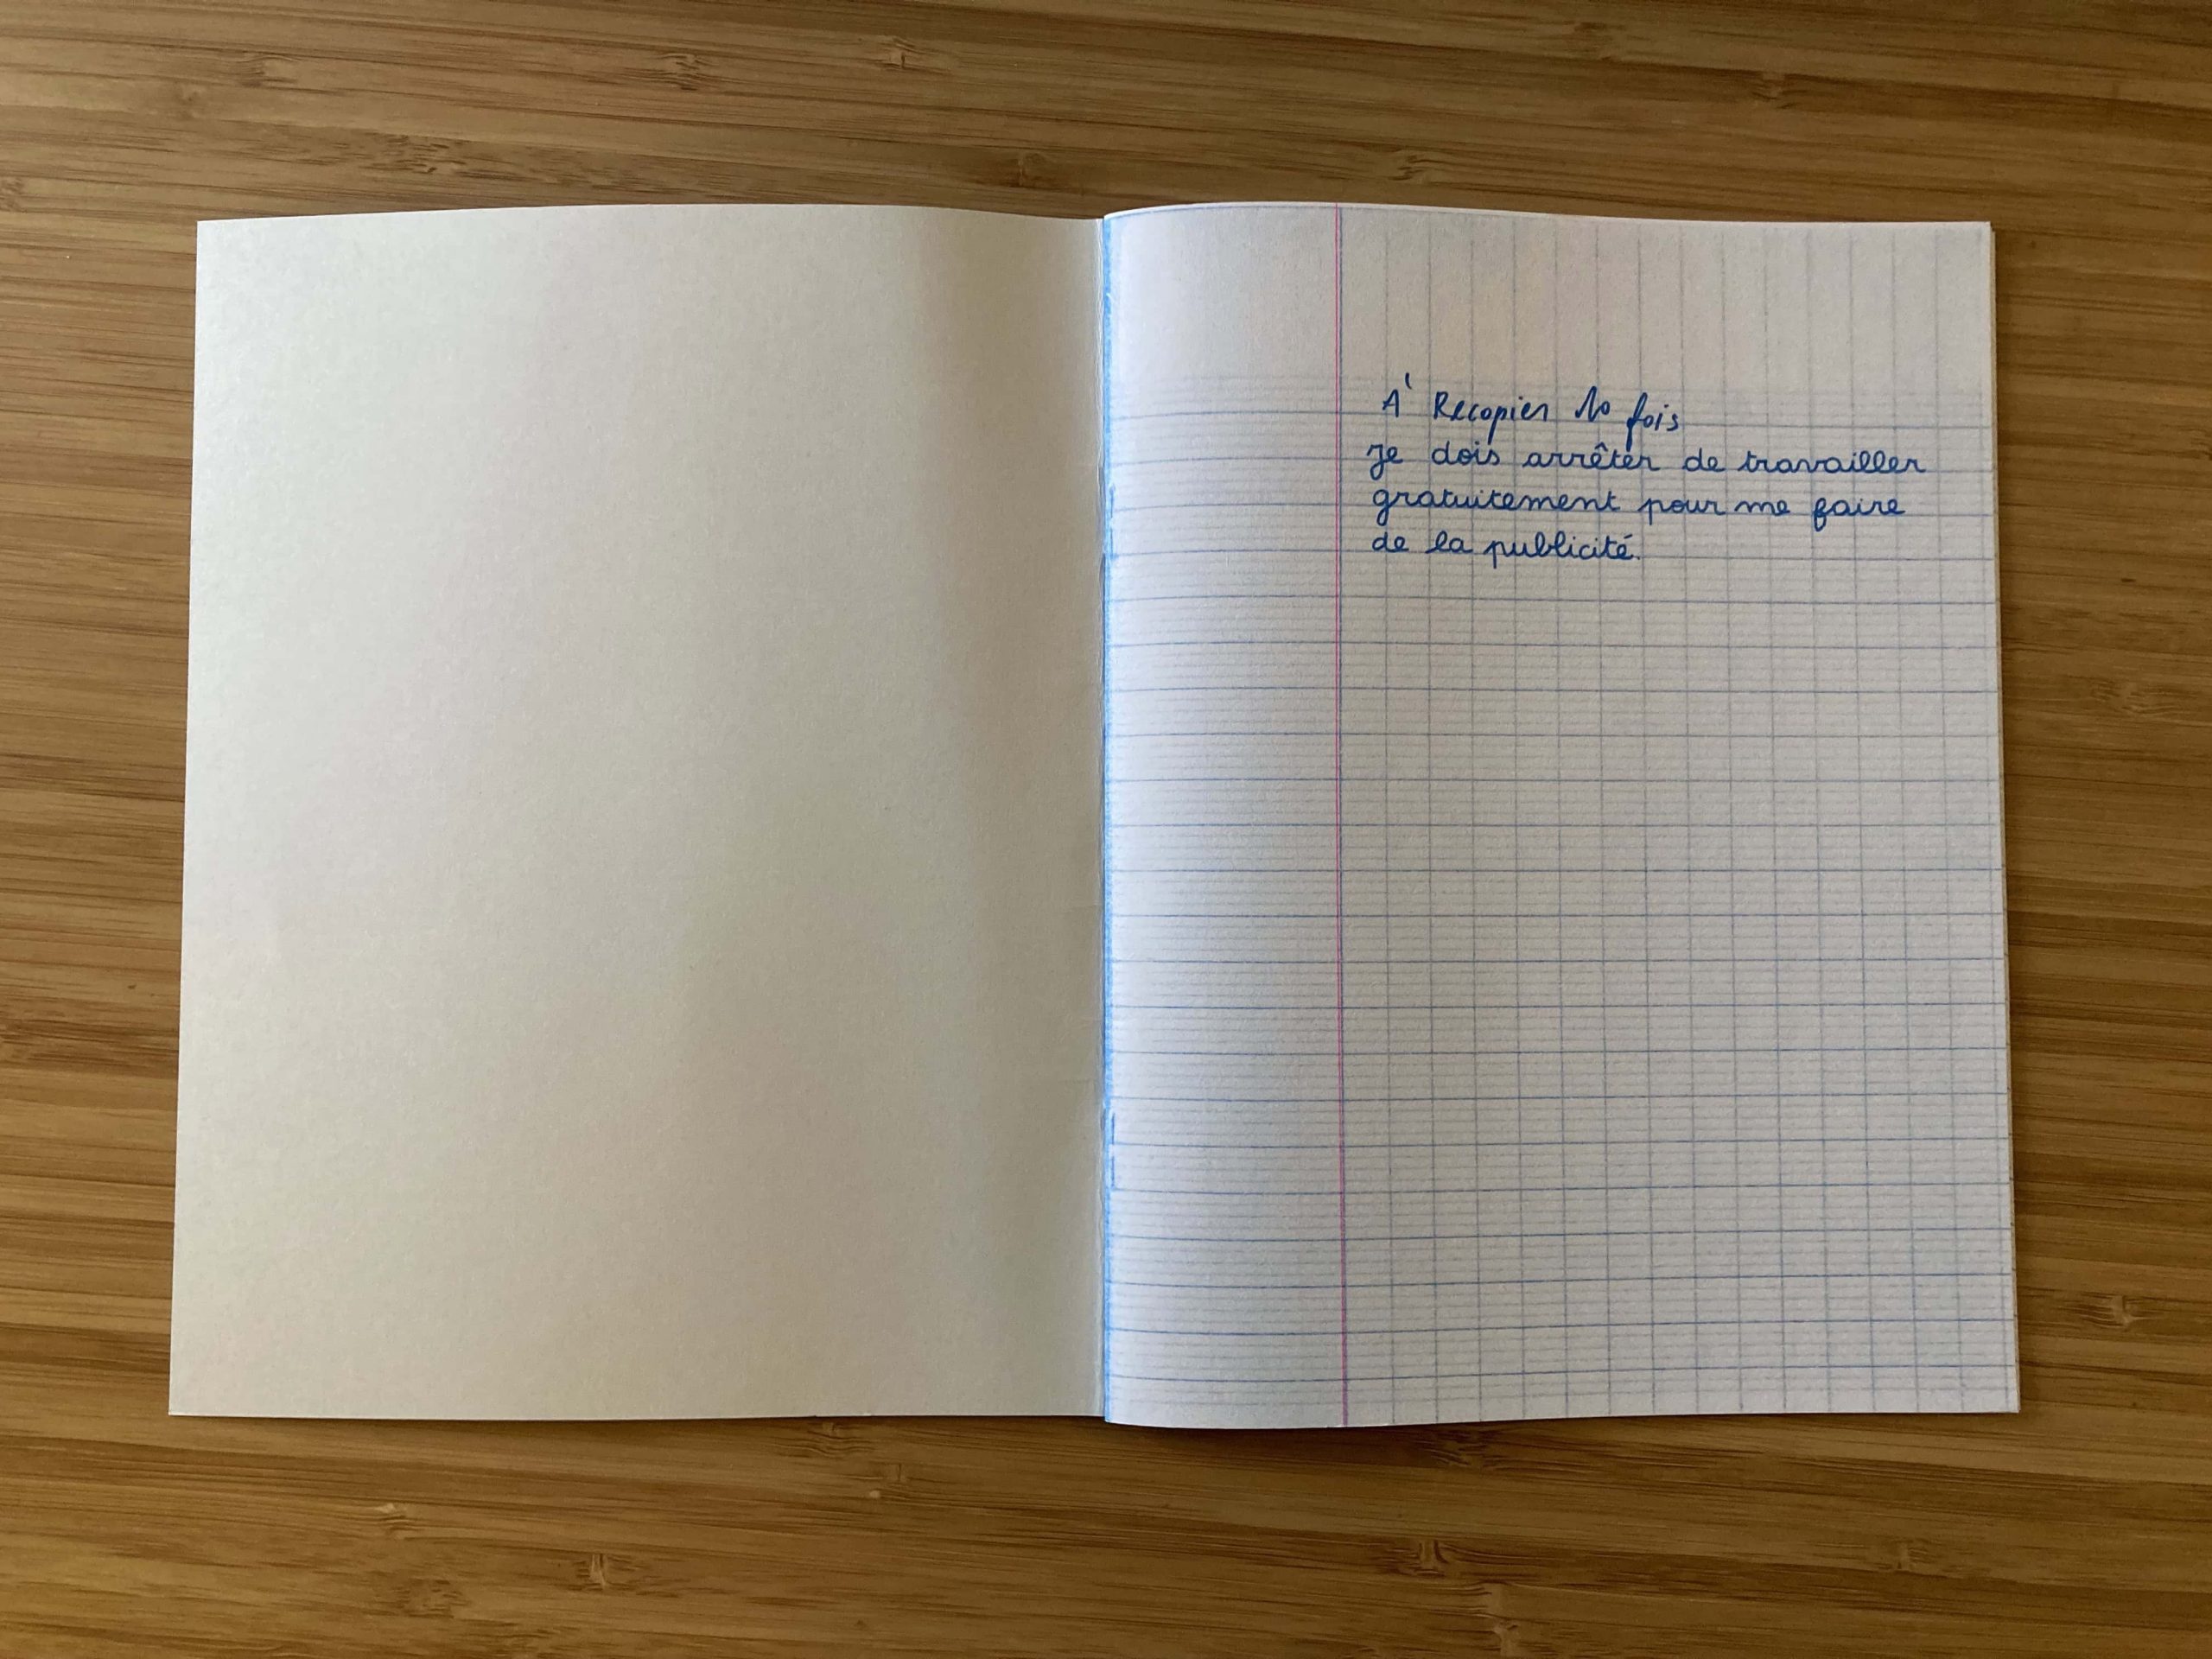 À Recopier 10 fois
Je dois arrêter de travailler
gratuitement pour me faire
de la publicité.